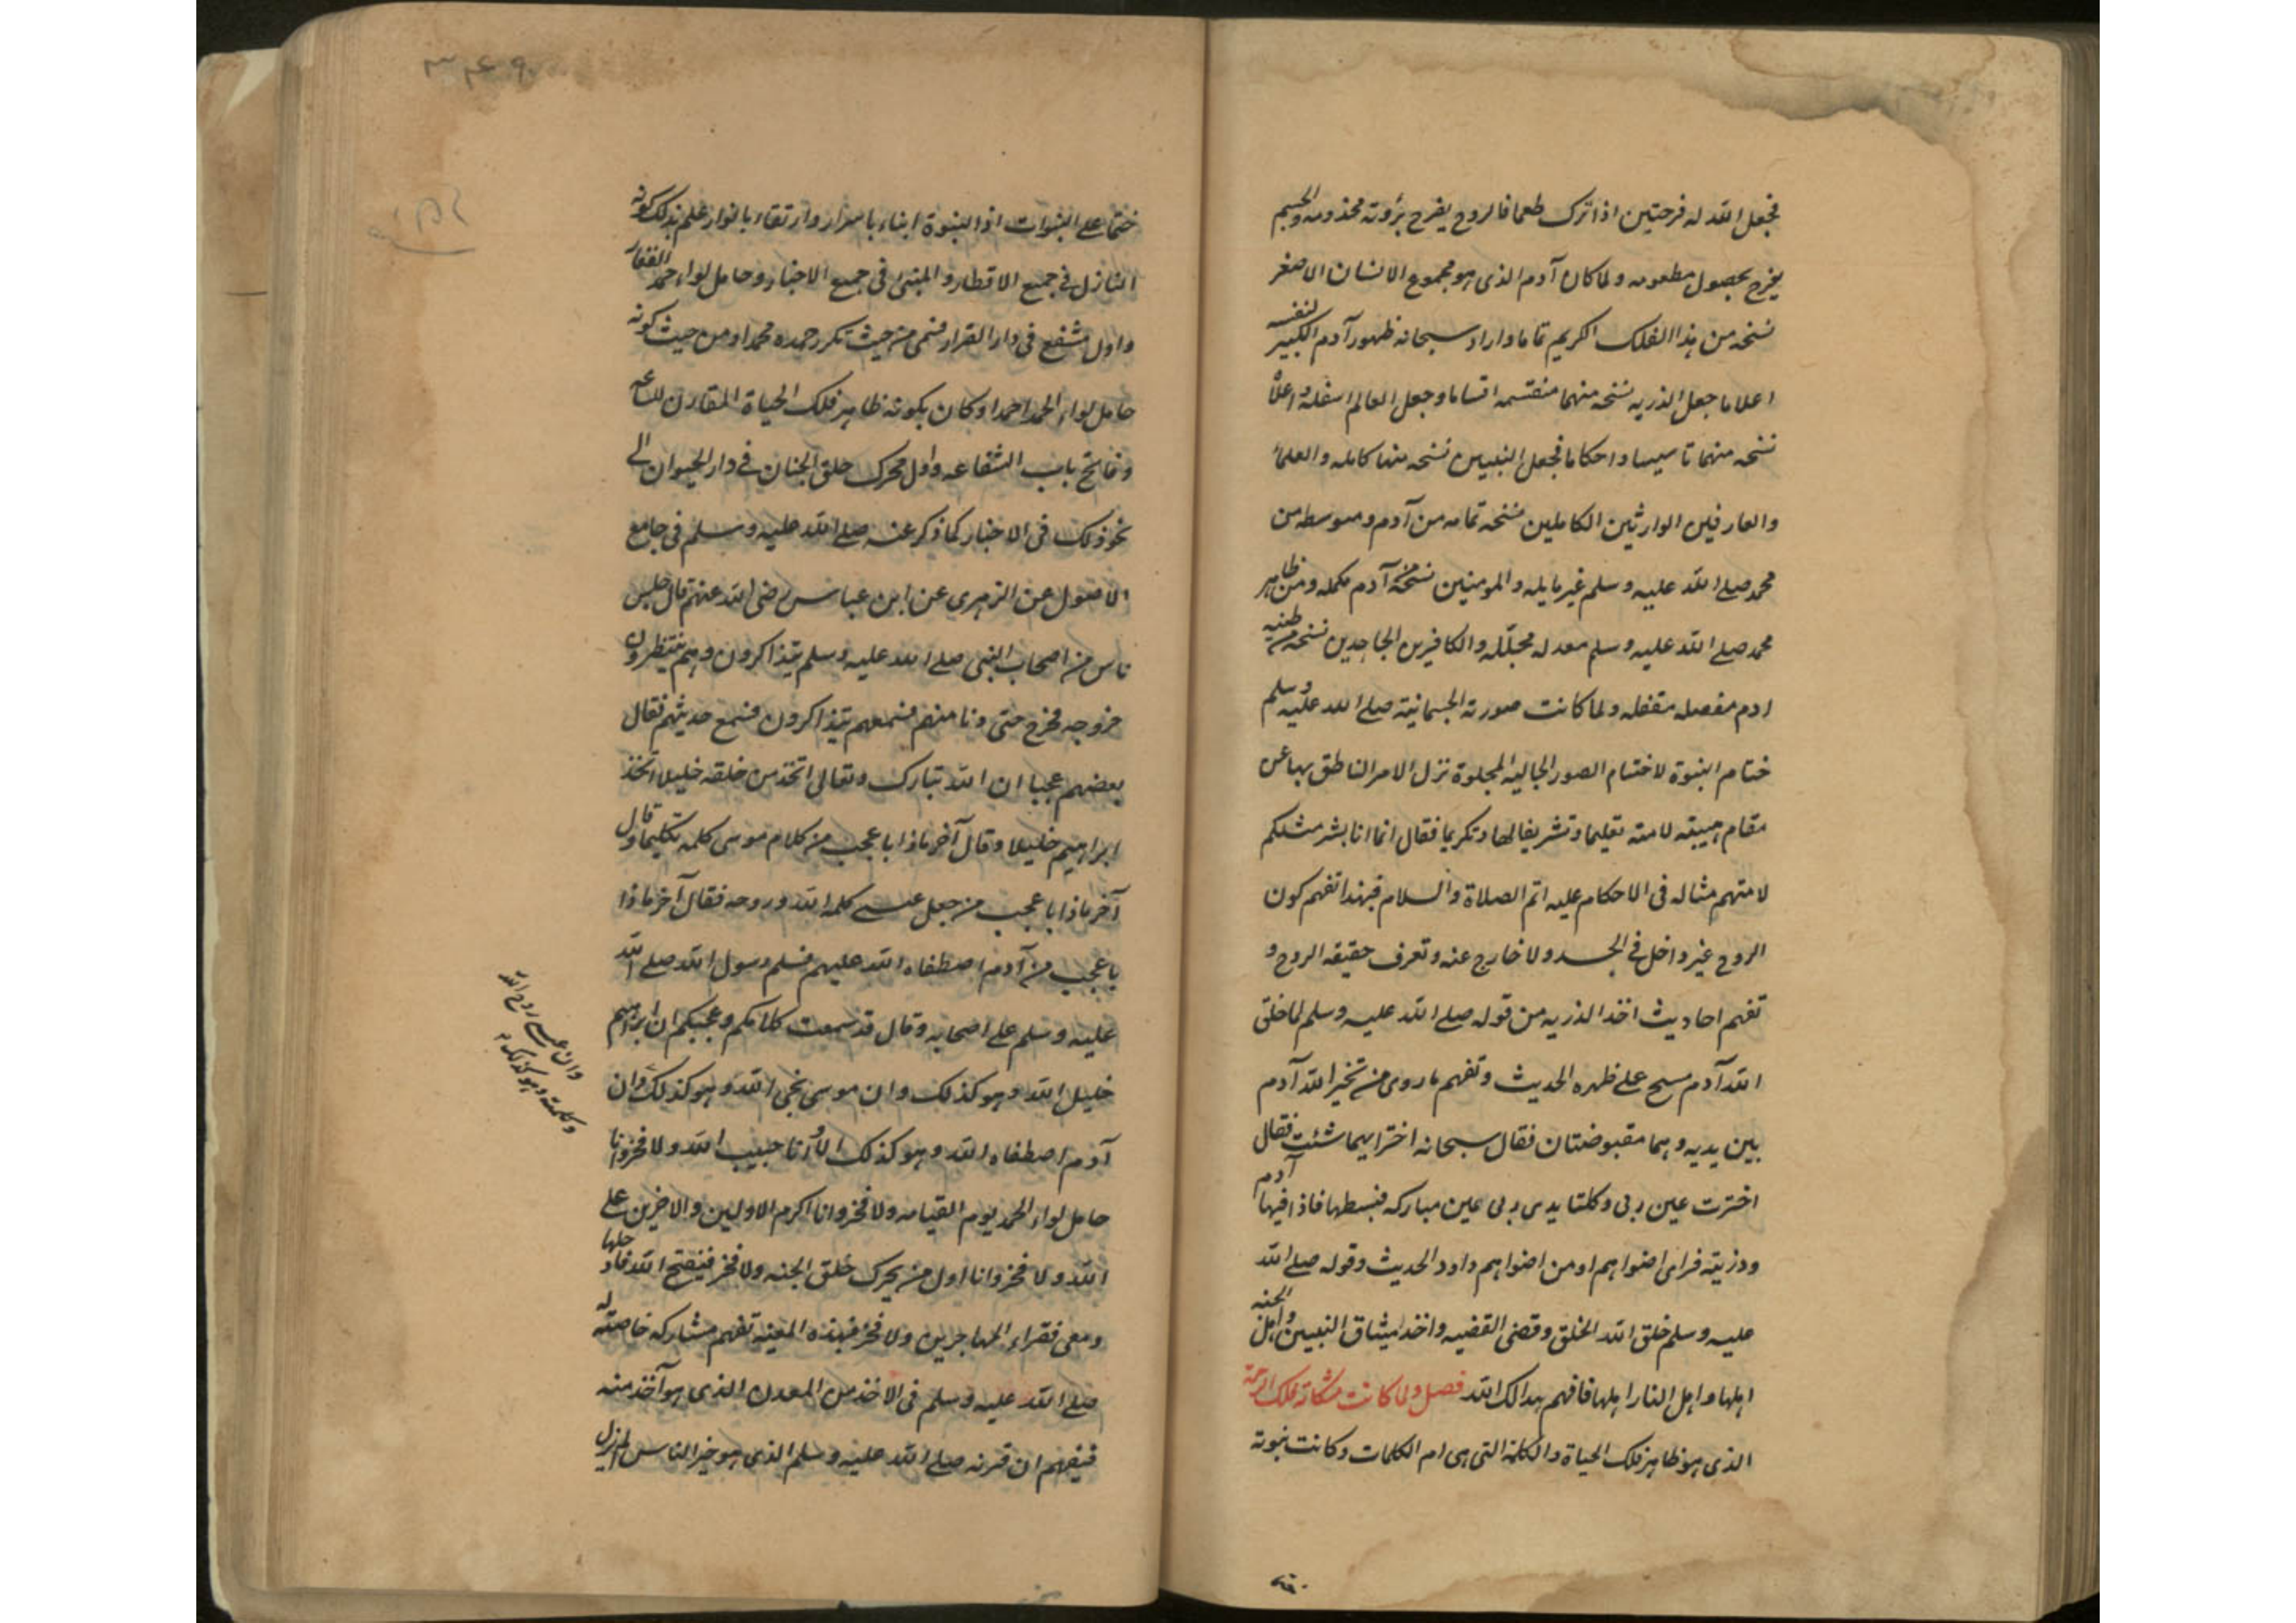 فجعل الله له فرحتين اذا ترك طعما فالروح يفرح برؤيته مخدومه والجسم
يفرح بحصول مطعومه ولما كان آدم الذى هو مجموع الانسان الاصغر
نسخه من هذا الفلك الكريم تماما واراد سبحانه ظهور آدم الكبير لنفسه
اعلاما جعل الذريه نسخه منهما منقسمه اقساما وجعل العالم اسفله واعلاه
نسخه منهما تاسيسا واحكاما فجعل النبيين نسخه منها كامله والعلماء
والعارفين الوارثين الكاملين نسخه تمامه من آدم ومتوسطه من
محمد صلے الله عليه وسلم غير مايله والمومنين نسخة آدم مكمله ومن ظاهر
محمد صلے الله عليه وسلم معدله مجلله والكافرين الجاحدين نسخه من طينه
ادم مفصله مقفله ولما كانت صورته الجسمانية صلے الله عليه وسلم
ختام النبوة لاختتام الصور الجاليه المجلوة نزل الامر الناطق بها عن
مقام هيبته لامته تعليما وتشريفا لها وتكريما فقال انما انا بشر مثلكم
لامتهم مثاله فى الاحكام عليه اتم الصلاة والسلام فبهذا تفهم كون
الروح غير داخل فے الجسد ولا خارج عنه وتعرف حقيقه الروح و
تفهم احاديث اخذ الذريه من قوله صلے الله عليه وسلم لما خلق
الله آدم مسح علے ظهره الحديث وتفهم ما روى من تخير الله آدم
بين يديه وهما مقبوضتان فقال سبحانه اختر ايهما شئت فقال
اخترت يمين ربى وكلتا يدى ربى يمين مباركه فبسطها فاذا فيها آدم
وذريته فراى اضواهم او من اضواهم داود الحديث وقوله صلے الله
عليه وسلم خلق الله الخلق وقضى القضيه واخذ ميثاق النبيين واهل الجنه
اهلها واهل النار اهلها فافهم هداك الله فصل ولما كانت مشكاته تلك الرحمة
الذى هو ظاهر فلك الحياة والكلمة التى هى ام الكلمات وكانت نبوته
ختما علے النبوات اذ النبوة انباء باسرار وارتقاء بانوار علم بذلك كونه
النازل فے جميع الاقطار والمنبئ فى جميع الاخبار وحامل لواء حمد الغفار
واول مشفع فى دار القرار فسمى من حيث تكرر حمده محمدا ومن حيث كونه
حامل لواء الحمد احمدا وكان بكونه ظاهر فلك الحياة المقارن للساعه
وفاتح باب الشفاعه واول محرك حلق الجنان فے دار الحيوان الے
نحو ذلك فى الاخبار كما ذكر عنه صلے الله عليه وسلم فى جامع
الاصول عن الزهرى عن ابن عباس رضى الله عنهم قال جلس
ناس من اصحاب النبى صلے الله عليه وسلم يتذاكرون وهم ينتظرون
خروجه فخرج حتى دنا منهم فسمعهم يتذاكرون فسمع حديثهم فقال
بعضهم عجبا ان الله تبارك وتعالى اتخذ من خلقه خليلا اتخذ
ابراهيم خليلا وقال آخر ماذا باعجب من كلام موسى كلمه تكليما وقال
آخر ماذا باعجب من جعل عيسے كلمة الله وروحه فقال آخر ماذا
باعجب من آدم اصطفاه الله عليهم فسلم رسول الله صلے الله
عليه وسلم علے اصحابه وقال قد سمعت كلامكم وعجبكم ان ابراهيم
خليل الله وهو كذلك وان موسى نجى الله وهو كذلك وان
آدم اصطفاه الله وهو كذلك الا وانا حبيب الله ولا فخر وانا
حامل لواء الحمد يوم القيامه ولا فخر وانا اكرم الاولين والاخرين علے
الله ولا فخر وانا اول من يحرك حلق الجنه ولا فخر فيفتح الله فادخلها
ومعى فقراء المهاجرين ولا فخر فبهذه المعيه تفهم مشاركه خاصته له
صلے الله عليه وسلم فى الاخذ من المعدن الذى هو آخذ منه
فيفهم ان قرنه صلے الله عليه وسلم الذى هو خير الناس لم يزل
وان عيسے روح الله
وكلمته وهو كذلك